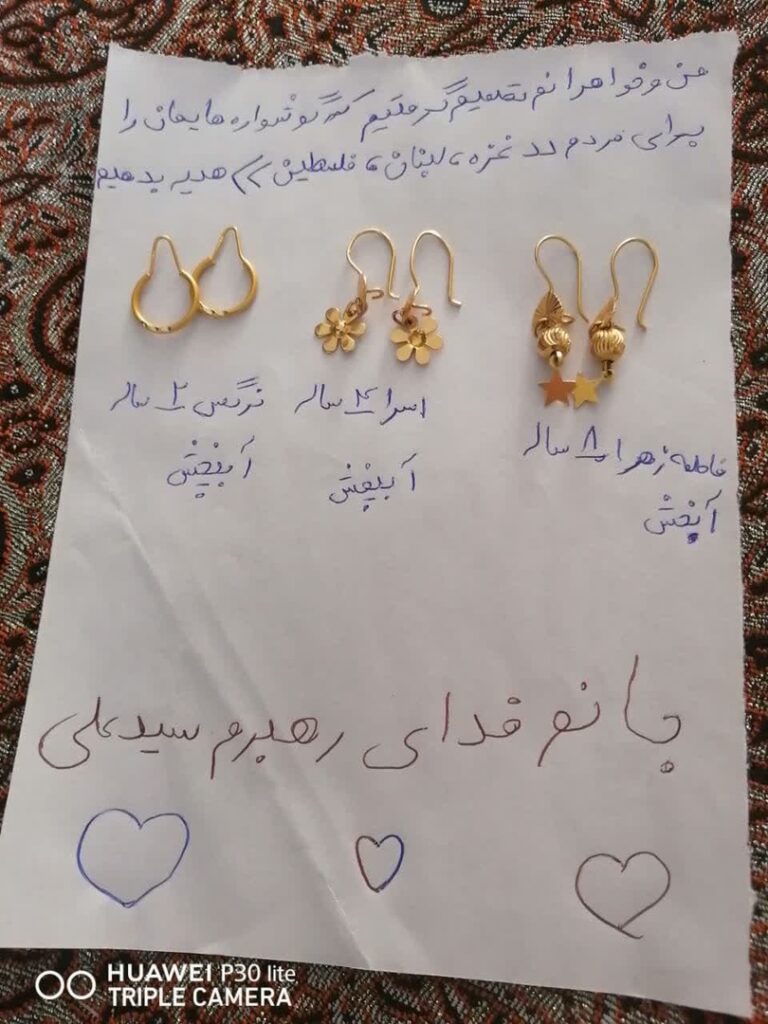 من و خواهرانم تصمیم گرفتیم که گوشواره هایمان را
برای مردم «« غزه، لبنان، فلسطین »» هدیه بدهیم
فاطمه زهرا ۸ ساله
آبخش
اسرا ۴ ساله
آبخش
نرگس ۲ ساله
آبخش
جانم فدای رهبرم سیدعلی
HUAWEI P30 lite
TRIPLE CAMERA